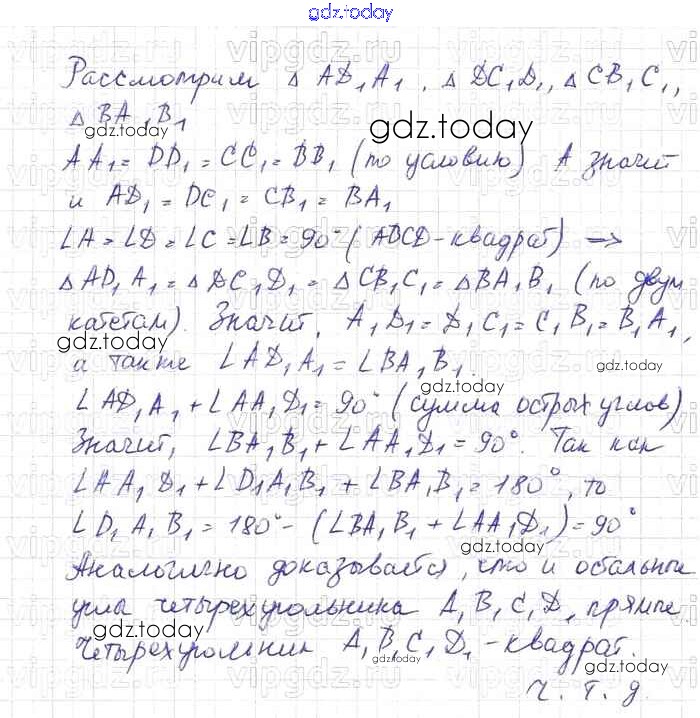 gdz.today
Рассмотрим △ AD₁A₁, △ DC₁D₁, △ CB₁C₁,
△ BA₁B₁
gdz.today
gdz.today
AA₁ = DD₁ = CC₁ = BB₁ (по условию) А значит
и AD₁ = DC₁ = CB₁ = BA₁
∠A = ∠D = ∠C = ∠B = 90° (ABCD - квадрат) ⟹
△ AD₁A₁ = △ DC₁D₁ = △ CB₁C₁ = △ BA₁B₁ (по двум
катетам). Значит, A₁D₁ = D₁C₁ = C₁B₁ = B₁A₁,
gdz.today
а также ∠AD₁A₁ = ∠BA₁B₁.
gdz.today
∠AD₁A₁ + ∠AA₁D₁ = 90° (сумма острых углов)
Значит, ∠BA₁B₁ + ∠AA₁D₁ = 90°. Так как
∠AA₁D₁ + ∠D₁A₁B₁ + ∠BA₁B₁ = 180°, то
∠D₁A₁B₁ = 180° - (∠BA₁B₁ + ∠AA₁D₁) = 90°
gdz.today
Аналогично доказывается, что и остальные
угла четырехугольника A₁B₁C₁D₁ прямые
gdz.today
Четырехугольник A₁B₁C₁D₁ - квадрат.
gdz.today
ч. т. д.